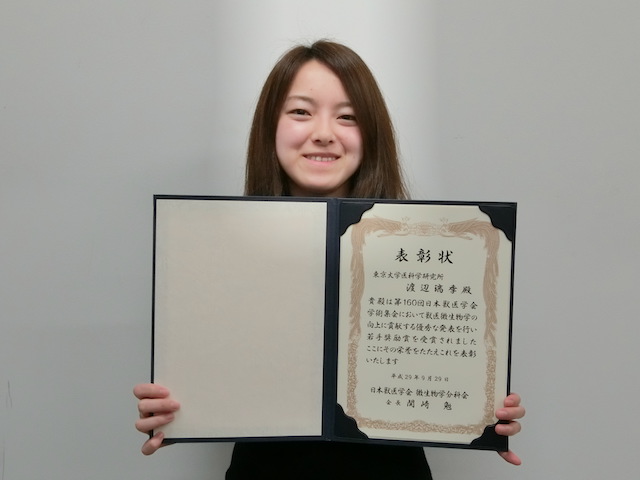 表彰状
東京大学医科学研究所
渡辺璃季殿
貴殿は第160回日本獣医学会
学術集会において獣医微生物学の
向上に貢献する優秀な発表を行い
若手奨励賞を受賞されました
ここにその栄誉をたたえこれを表彰
いたします
平成29年9月29日
日本獣医学会 微生物学分科会
会長 関崎 勉